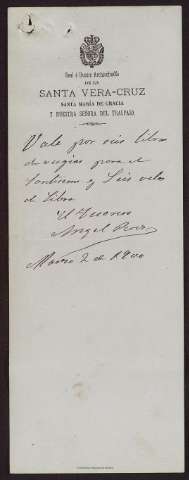 Real é Ilustre Archicofradía
DE LA
SANTA VERA-CRUZ
SANTA MARÍA DE GRACIA
Y NUESTRA SEÑORA DEL TRASPASO
Vale por seis libras
de vugias para el
y Seis velas
de libra
El Tesorero
Angel
Marzo 2 de 1900